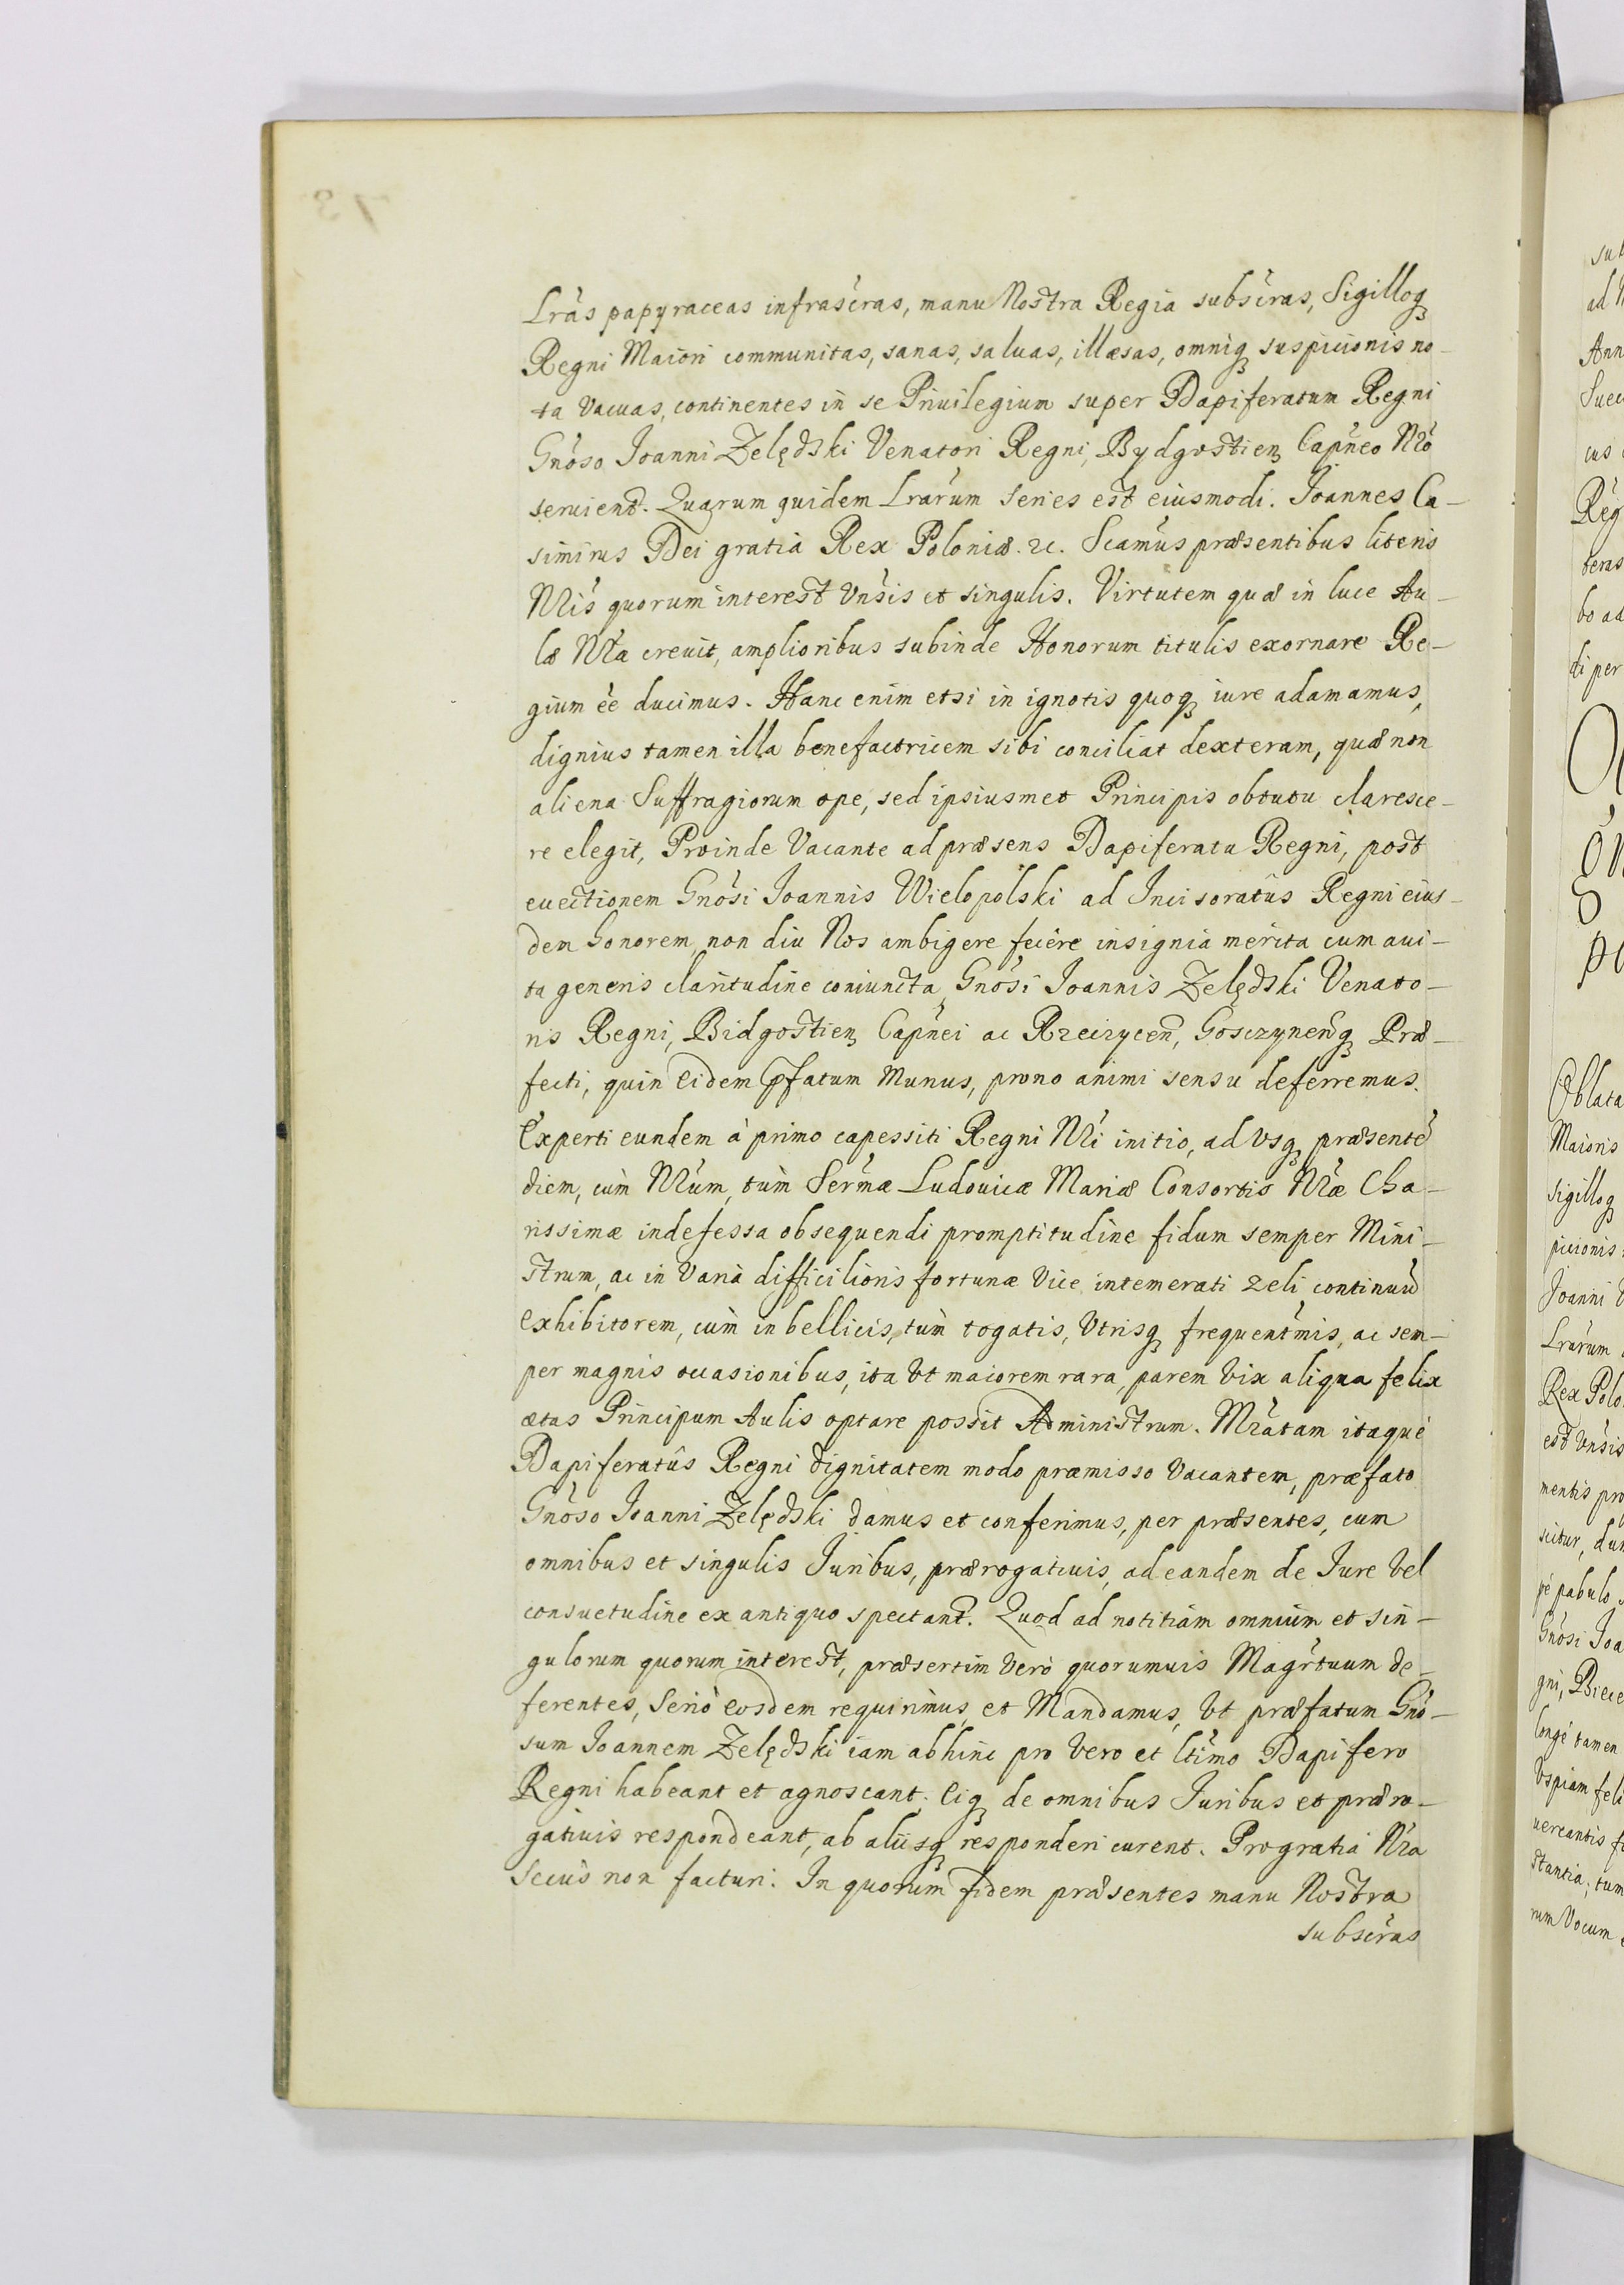 Lras papyraceas infrascras, manu Nostra Regia subscras, Sigilloq
Regni Maiori communitas, sanas, saluas, illæsas, omniq suspicionis no-
ta vacuas, continentes in se Priuilegium super Dapiferatum Regni
Gnoso Joanni Zelęcki Venatori Regni, Bydgostien Capneo Nro
seruient. Quarum quidem Lrarum series est eiusmodi. Joannes Ca-
simirus Dei gratia Rex Poloniæ. &c. Scamus præsentibus literis
Nris quorum interest Vnsis et singulis. Virtutem quæ in luce Au-
læ Nra creuit, amplioribus subinde Honorum titulis exornare Re-
gium ee ducimus. Hanc enim etsi in ignotis quoq iure adamamus,
dignius tamen illa benefactricem sibi conciliat dexteram, quæ non
aliena Suffragiorum ope, sed ipsiusmet Principis obtutu claresce-
re elegit, Proinde Vacante ad præsens Dapiferatu Regni, post
euectionem Gnosi Joannis Wielopolski ad Incisoratûs Regni eius-
dem honorem, non diu Nos ambigere fecêre insignia merita cum aui-
ta generis claritudine coniuncta, Gnosi Joannis Zelęcki Venato-
ris Regni, Bidgostien Capnei ac Rzeczycen, Gosczynenq Præ-
fecti, quin eidem pfatum Munus, prono animi sensu deferremus.
Experti eundem à primo capessiti Regni Nri initio, ad vsq præsente
diem, cùm Nrum, tùm Sermæ Ludouicæ Mariæ Consortis Nræ Cha-
rissimæ indefessa obsequendi promptitudine fidum semper Mini-
strum, ac in varià difficilioris fortunæ vice intemerati zeli continuũ
exhibitorem, cùm in bellicis, tùm togatis, vtrisq frequentmis, ac sem-
per magnis occasionibus, ita vt maiorem rara, parem vix aliqua felix
ætas Principum Aulis optare possit Administrum. Mratam itaque
Dapiferatûs Regni dignitatem modo præmisso vacantem, præfato
Gnoso Joanni Zelęcki damus et conferimus, per præsentes, cum
omnibus et singulis Juribus, prærogatiuis, ad eandem de Jure vel
consuetudine ex antiquo spectant. Quod ad notitiam omnium et sin-
gulorum quorum interest, præsertim verò quorumuis Magrtuum de-
ferentes, Seriò eosdem requirimus, et Mandamus, vt præfatum Gno-
sum Joannem Zelęcki iam abhinc pro vero et ltimo Dapifero
Regni habeant et agnoscant. Eiq de omnibus Juribus et præro-
gatiuis respondeant, ab alijsq responderi curent. Pro gratia Nra
secùs non facturi. In quorum fidem præsentes manu Nostra
subscras